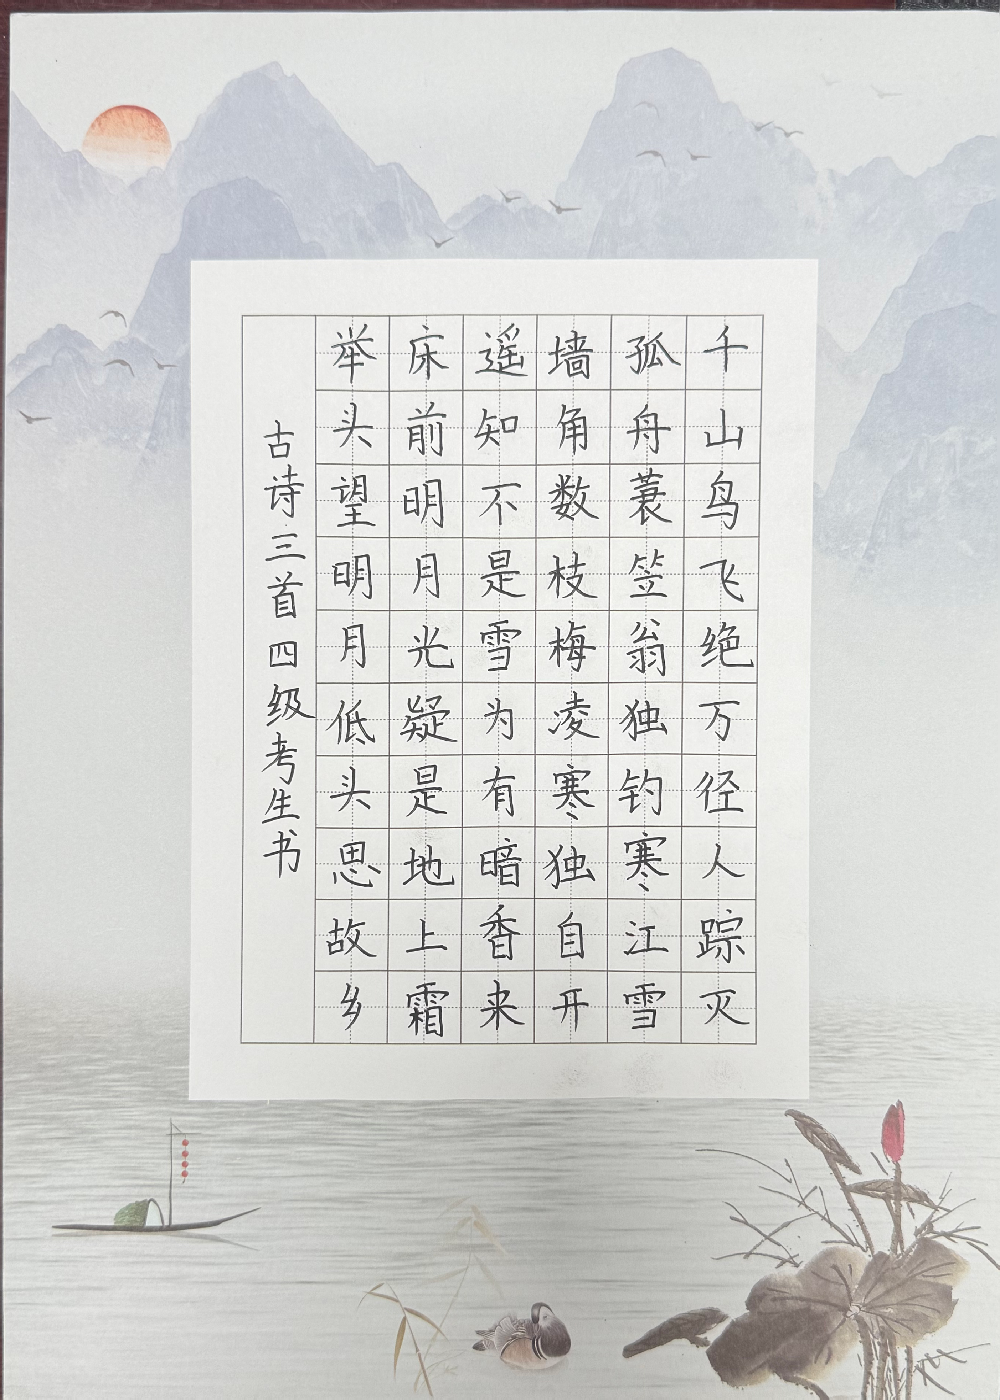 千山鸟飞绝万径人踪灭
孤舟蓑笠翁独钓寒江雪
墙角数枝梅凌寒独自开
遥知不是雪为有暗香来
床前明月光疑是地上霜
举头望明月低头思故乡
古诗三首四级考生书